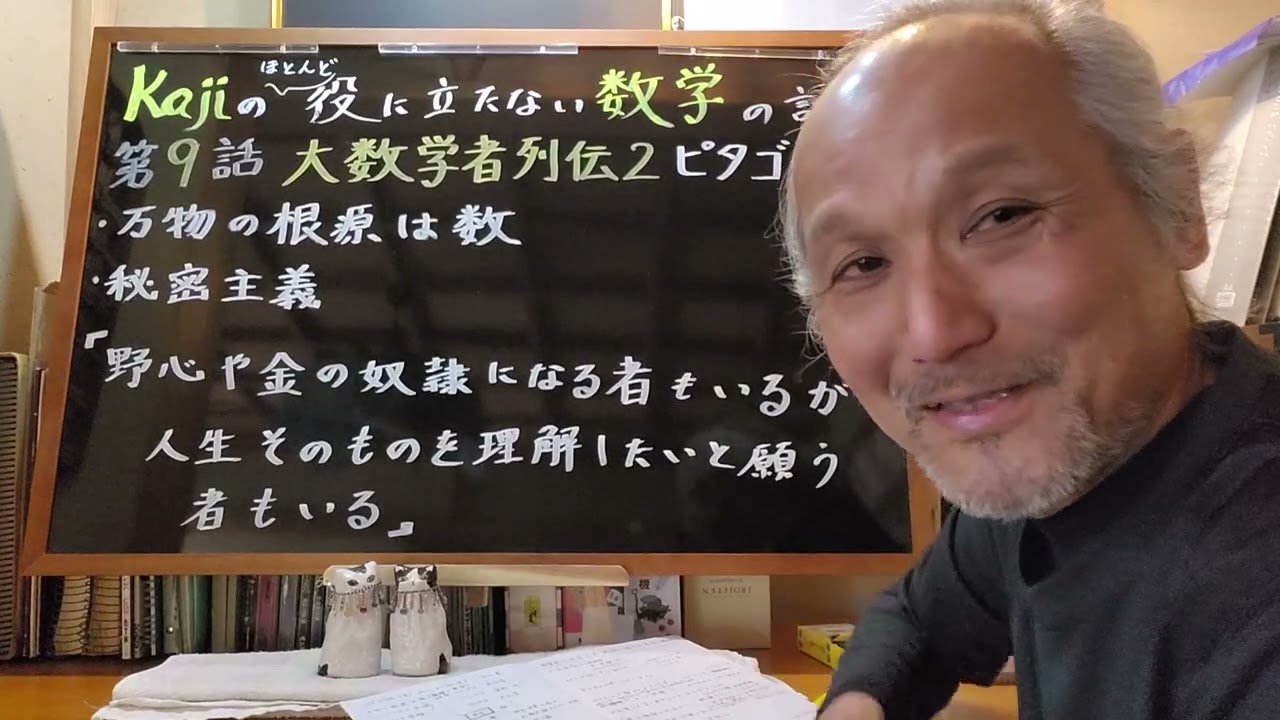 Kajiの ほとんど 役に立たない 数学の
第9話 大数学者列伝2 ピタゴ
・万物の根源は数
・秘密主義
「野心や金の奴隷になる者もいるが
人生そのものを理解したいと願う
者もいる」